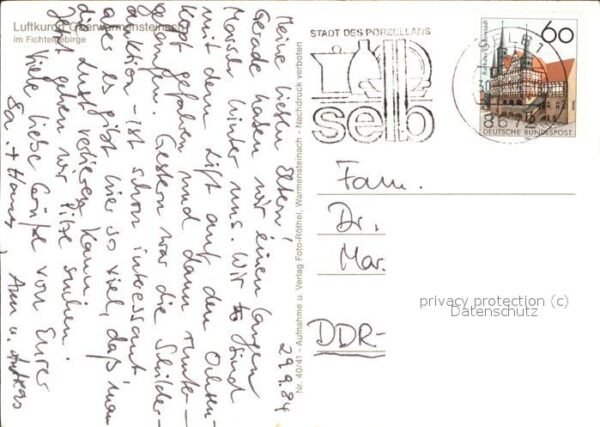 Luftkurort Oberwarmensteinach
im Fichtelgebirge
29.9.84
Meine lieben Eltern!
Gerade haben wir einen langen
Marsch hinter uns. Wir sind
mit dem Lift auf den Ochsen-
kopf gefahren und dann runter-
gelaufen. Gestern war die
- ist schon interessant
alles es gibt hier so viel, daß man
die Lust verlieren kann.
Jetzt gehen wir Pilze suchen.
Viele liebe Grüße von Eurer
Ann u. Andreas
Nr. 40/41 - Aufnahme u. Verlag Foto-Röthel, Warmensteinach - Nachdruck verboten
STADT DES PORZELLANS
selb
SELB 1
8672
60
DEUTSCHE BUNDESPOST
Fam.
Dr.
Mar.
DDR-
privacy protection (c)
Datenschutz